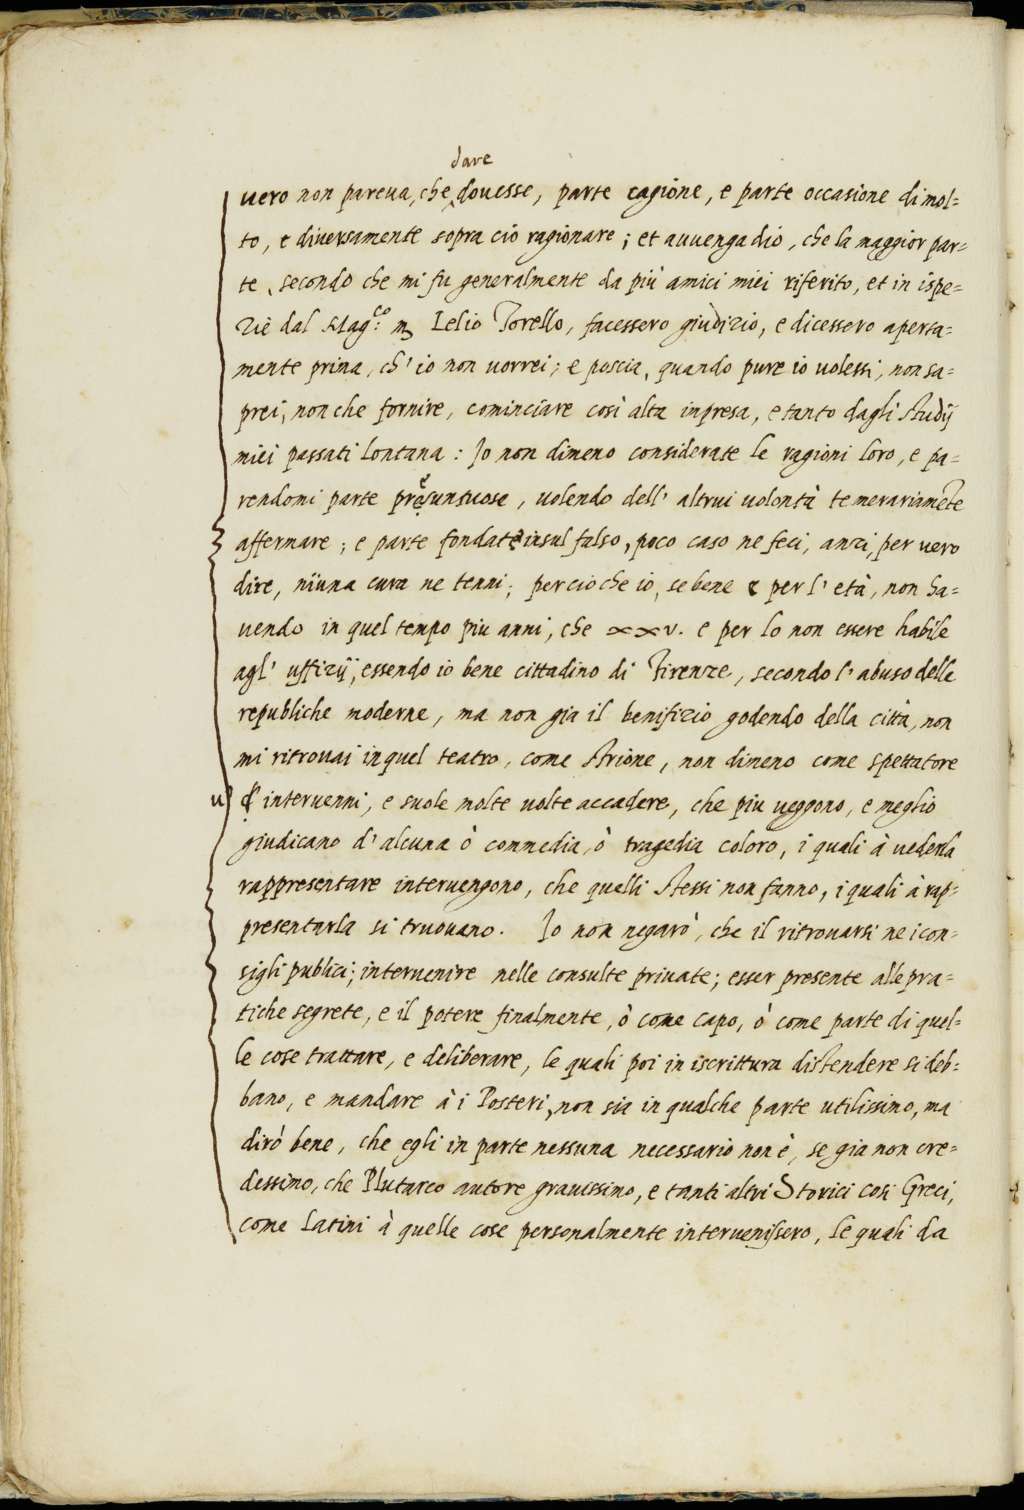 dare
vero non pareva, che dovesse, parte cagione, e parte occasione di mol=
to, e diversamente sopra ciò ragionare; et avvengadio, che la maggior par=
te, secondo che mi fu generalmente da più amici miei riferito, et in ispe=
zie dal Mag.co m Lelio Torello, facessero giudizio, e dicessero aperta=
mente prima, ch' io non vorrei; e poscia, quando pure io volessi, non sa=
prei, non che fornire, cominciare così alta inpresa, e tanto dagli studij
miei passati lontana: Io non dimeno considerate le ragioni loro, e pa=
rendomi parte presuntuose, volendo dell' altrui volontà temerariamēte
affermare; e parte fondate insul falso, poco caso ne feci, anzi, per vero
dire, niuna cura ne tenni; percioche io, se bene e per l' età, non ha=
vendo in quel tempo piu anni, che xxv. e per lo non essere habile
agl' uffizij, essendo io bene cittadino di Firenze, secondo l' abuso delle
republiche moderne, ma non gia il benifizio godendo della città, non
mi ritrovai in quel teatro, come strione, non dimeno come spettatore
v' intervenni, e suole molte volte accadere, che piu veggono, e meglio
giudicano d' alcuna ò commedia, ò tragedia coloro, i quali à vederla
rappresentare intervengono, che quelli stessi non fanno, i quali à rap=
presentarla si truovano. Io non negarò, che il ritrovarsi ne i con=
sigli publici; intervenire nelle consulte private; esser presente alle pra=
tiche segrete, e il potere finalmente, ò come capo, ò come parte di quel=
le cose trattare, e deliberare, le quali poi in iscrittura distendere si deb=
bano, e mandare à i Posteri, non sia in qualche parte utilissimo, ma
dirò bene, che egli in parte nessuna necessario non è, se gia non cre=
dessimo, che Plutarco autore gravissimo, e tanti altri Storici così Greci,
come Latini à quelle cose personalmente intervenissero, le quali da